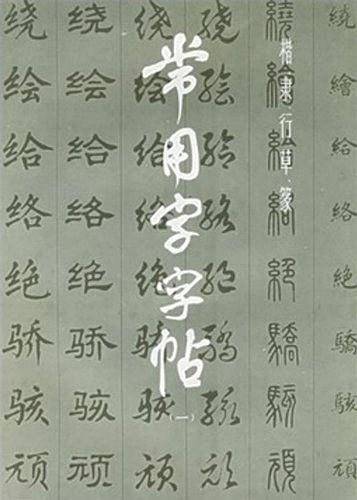 楷隶行草篆
常用字字帖
(一)
绕 绕 绕 绕 繞 繞
绘 绘 绘 绘 繪 繪
给 给 给 给 給 給
络 络 络 络 絡 絡
绝 绝 绝 绝 絕 絕
骄 骄 骄 骄 驕 驕
骇 骇 骇 骇 駭 駭
顽 顽 顽 顽 頑 頑